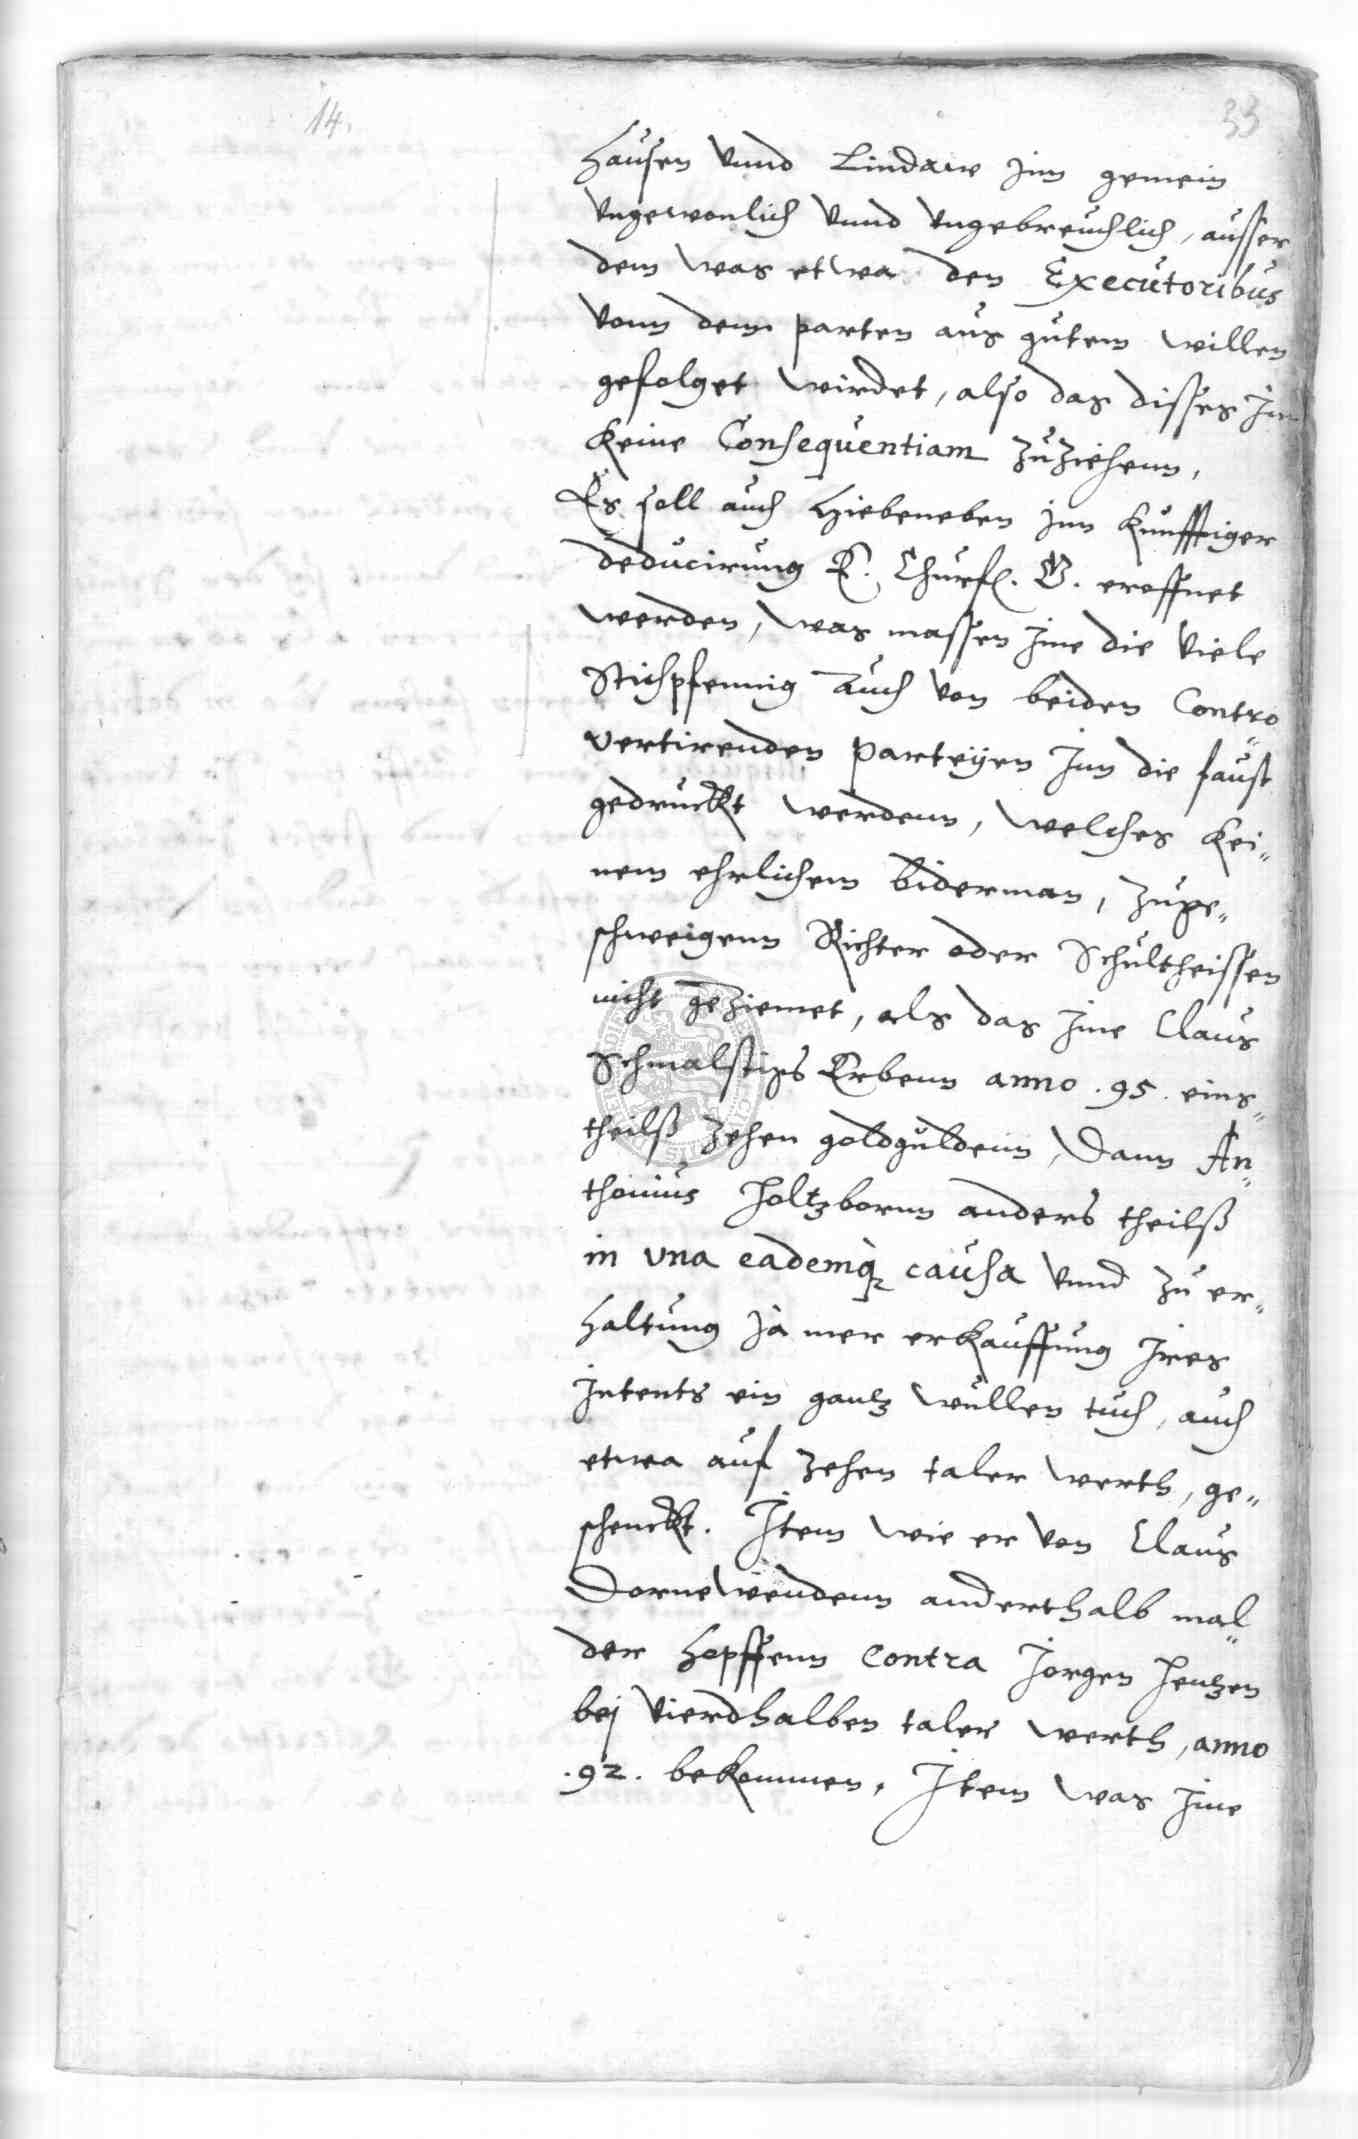 14.
33
hausen vnnd Lindaw jnn gemein
vngewonlich vnnd vngebreuchlich, ausser
dem was etwa den Executoribus
vonn dem parten aus gutem willen
gefolget wirdet, also das disses jnn
keine Consequentiam zuziehenn,
Es soll auch hiebeneben jnn kunfftiger
deducirung E. Churf. G. eroffnet
werden, was massen jme die viele
Stichpfennig auch von beiden Contro„
vertirenden parteyen jnn die faust
gedruckt werdenn, welches kei„
nem ehrlichem biderman, zuge„
schweigenn Richter oder Schultheissen
nicht geziemet, als das jme Claus
Schmalstigs Erbenn anno .95. eins„
theilß zehen goldguldenn, Dann An„
thonius Holtzbornn anders theilß
in vna eademq; causa vnnd zu er„
haltung ja mer erkauffung jres
jntents ein gantz wullen tuch, auch
etwa auf zehen taler werth, ge„
schenckt. Jtem wie er von Claus
Dornewendenn anderthalb mal„
der hopffenn contra Jorgen Hentzen
bej vierdhalben taler werth, anno
.92. bekommen, Jtem was jme